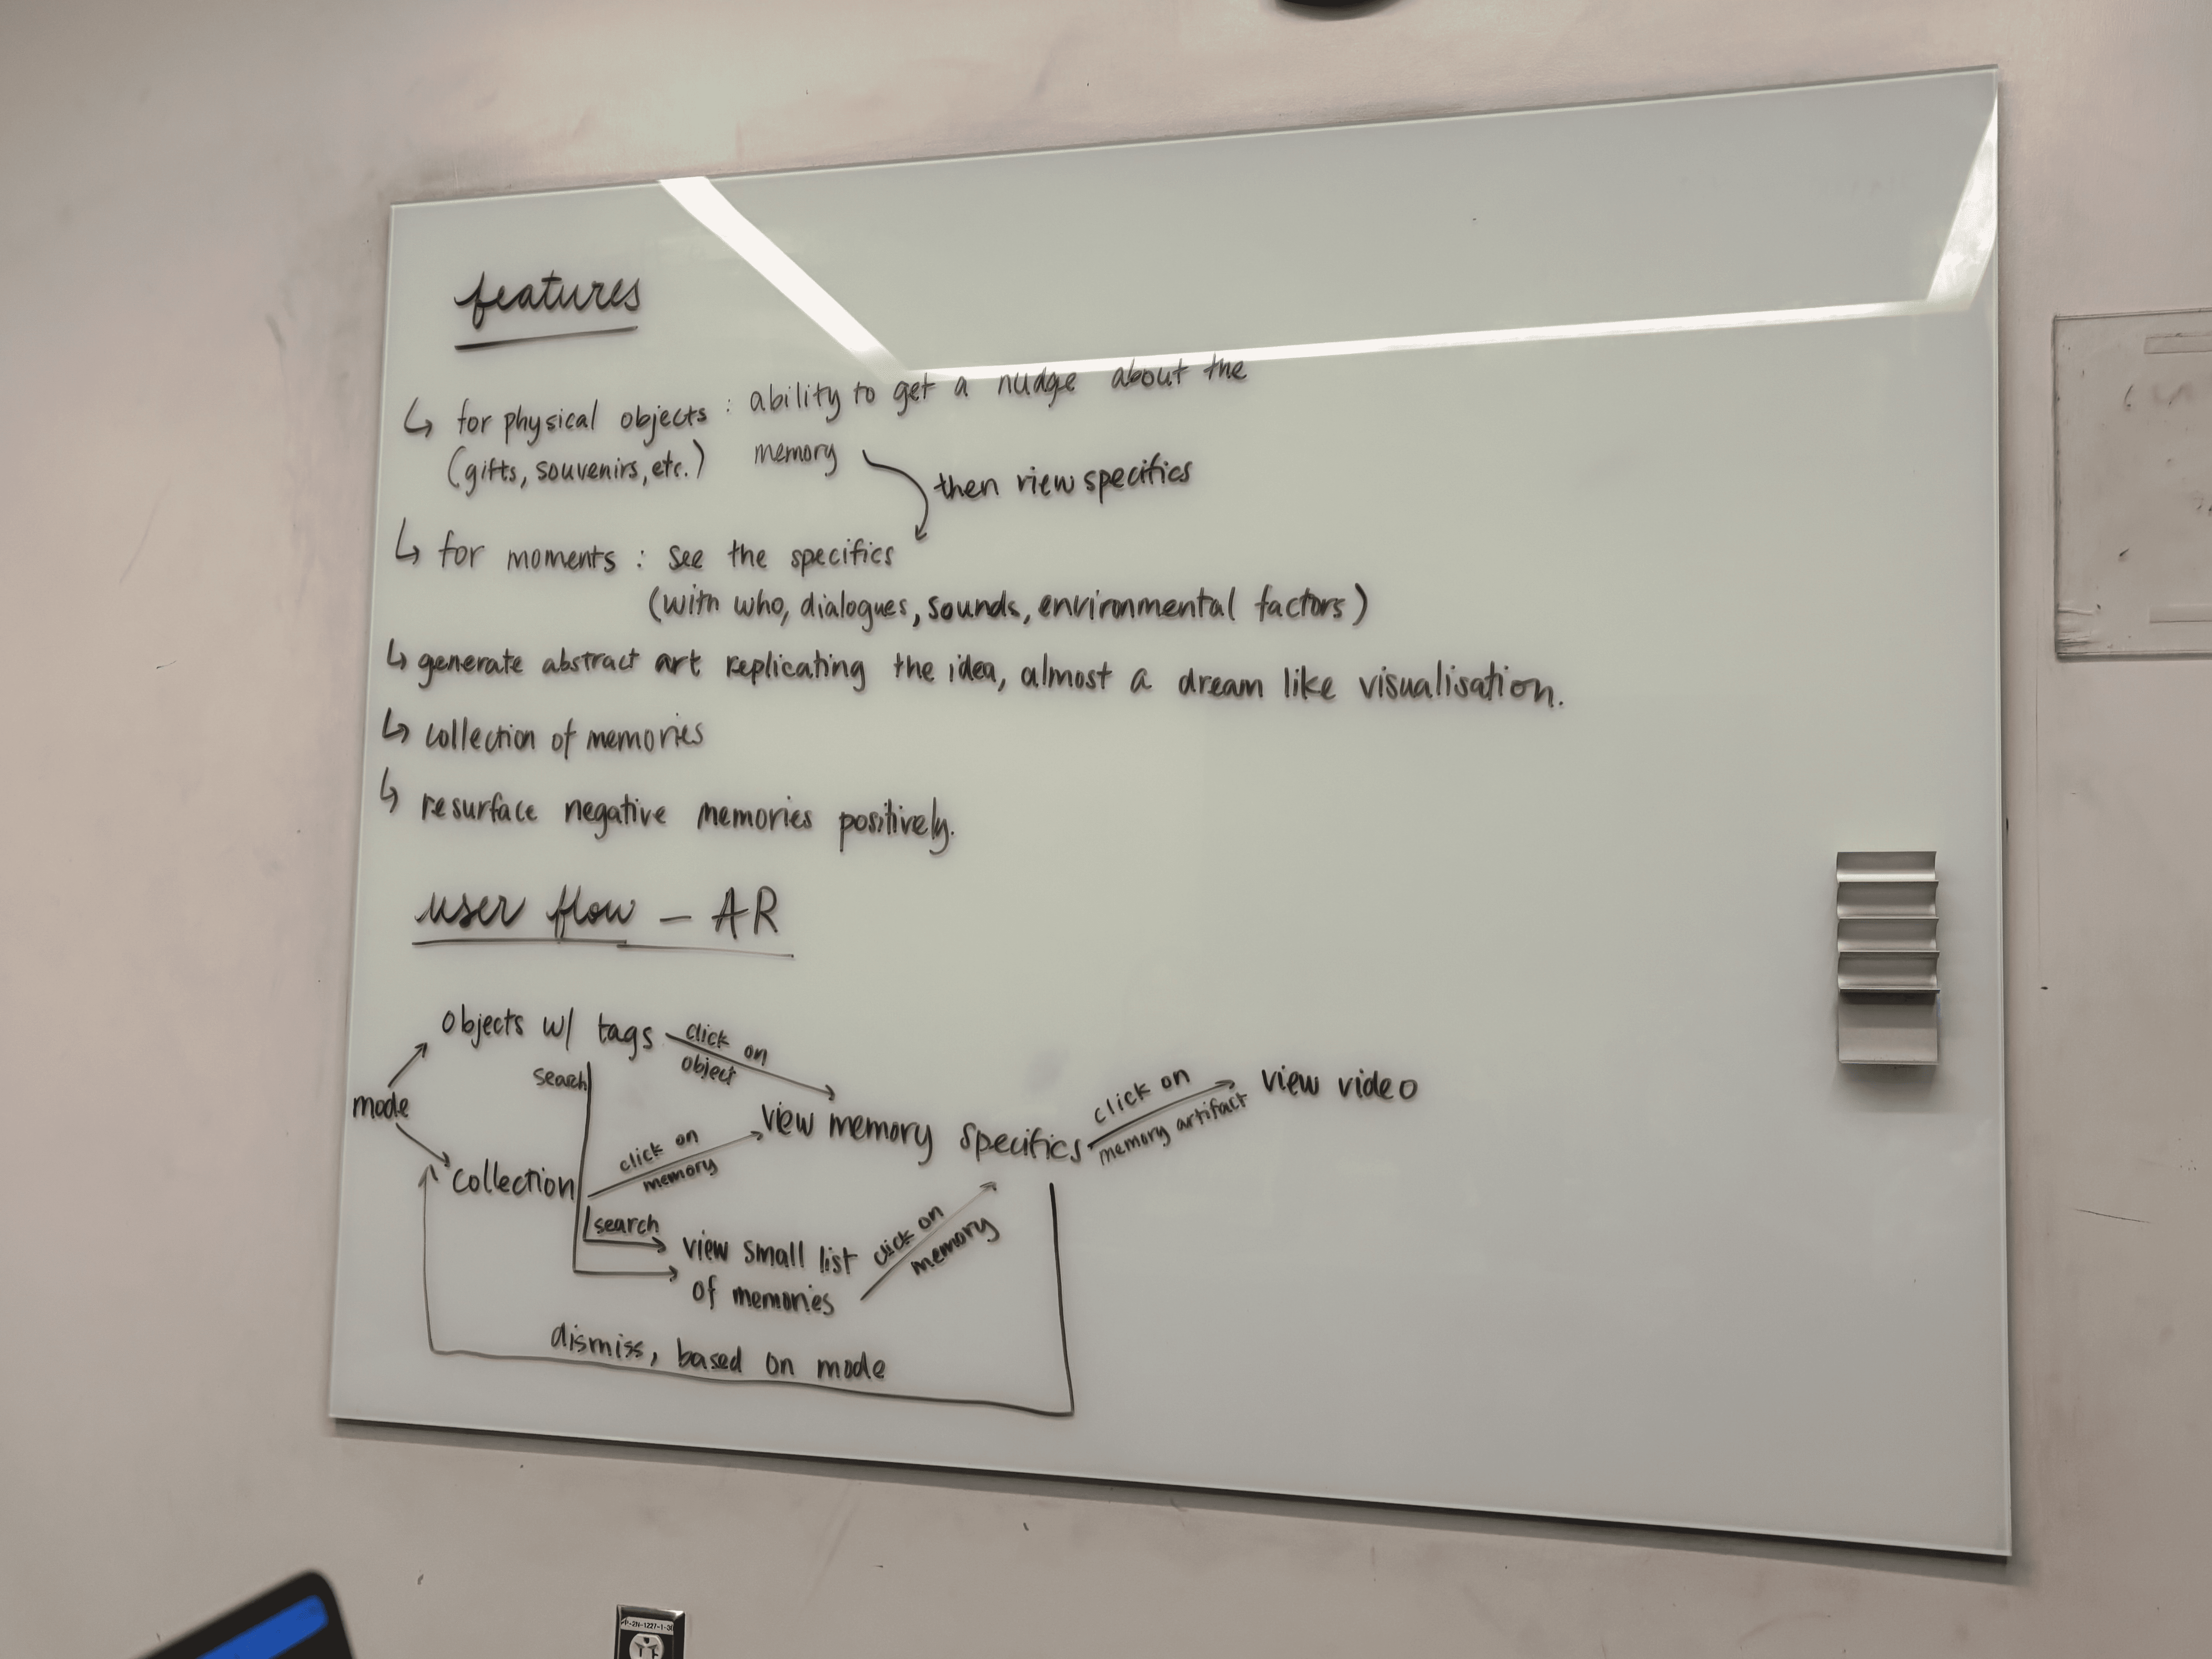 features
↳ for physical objects : ability to get a nudge about the
(gifts, souvenirs, etc.) memory
then view specifics
↳ for moments : see the specifics
(with who, dialogues, sounds, environmental factors)
↳ generate abstract art replicating the idea, almost a dream like visualisation.
↳ collection of memories
↳ resurface negative memories positively.
user flow – AR
objects w/ tags
click on
object
search
mode
view memory specifics
click on
memory artifact
view video
click on
memory
collection
search
view small list
of memories
click on
memory
dismiss, based on mode